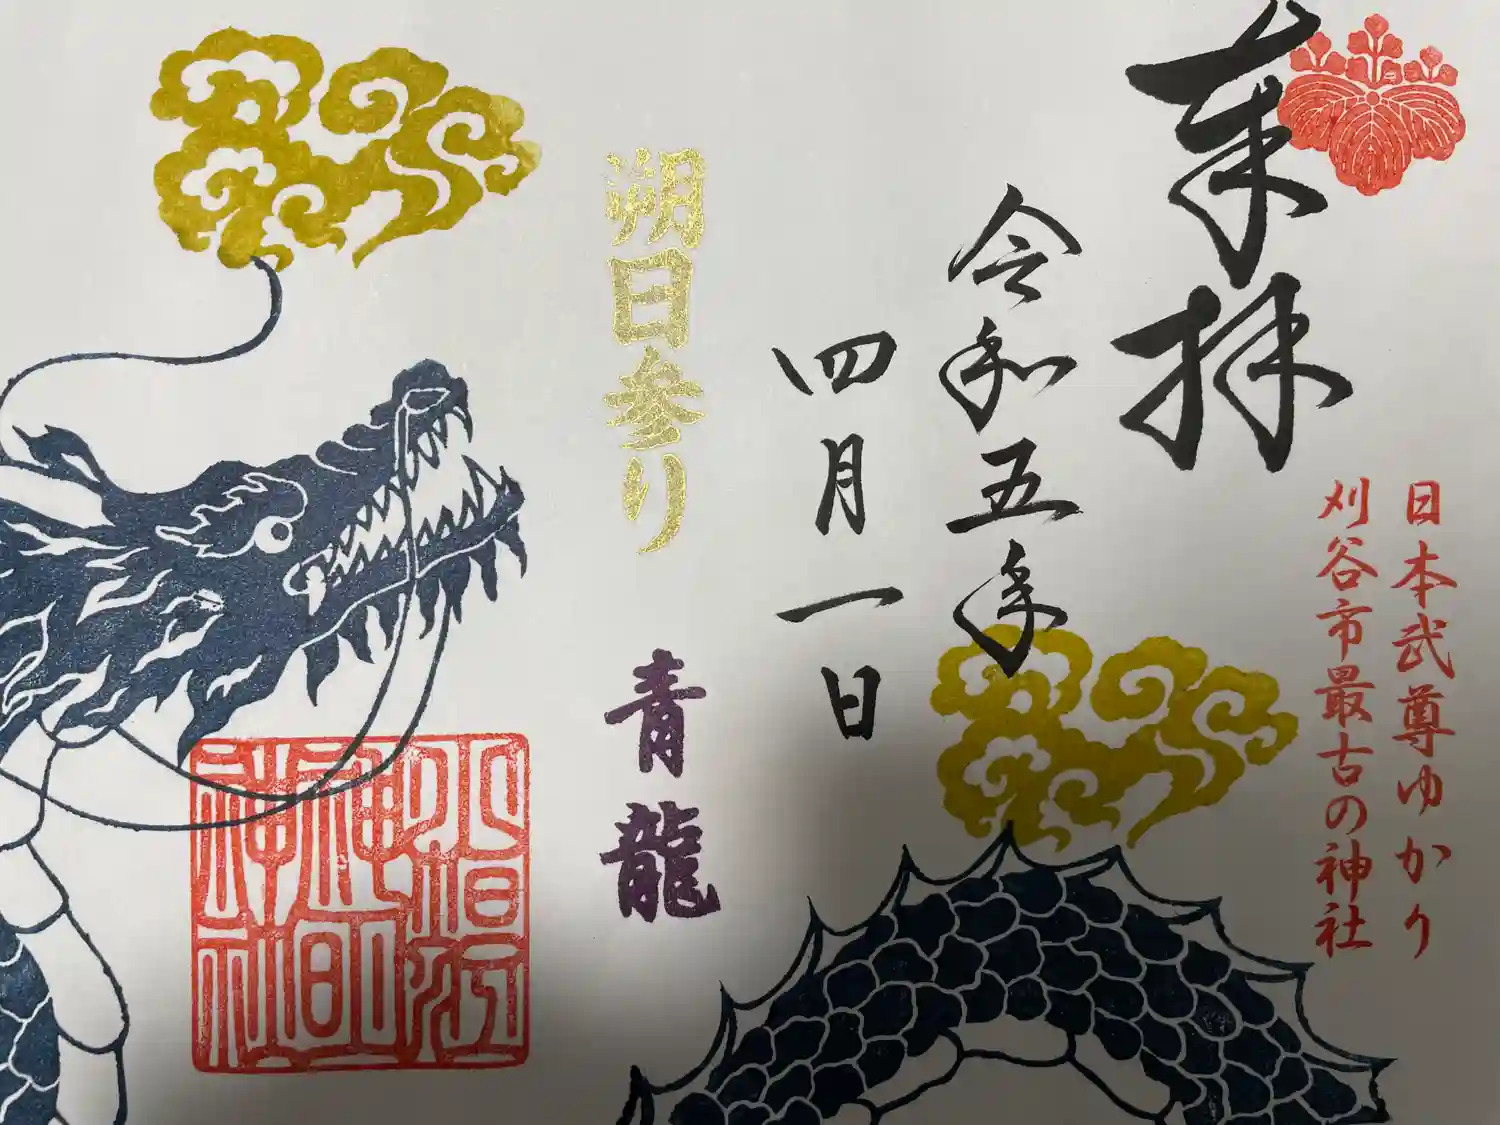 奉拝
日本武尊ゆかり
刈谷市最古の神社
令和五年
四月一日
朔日参り
青龍